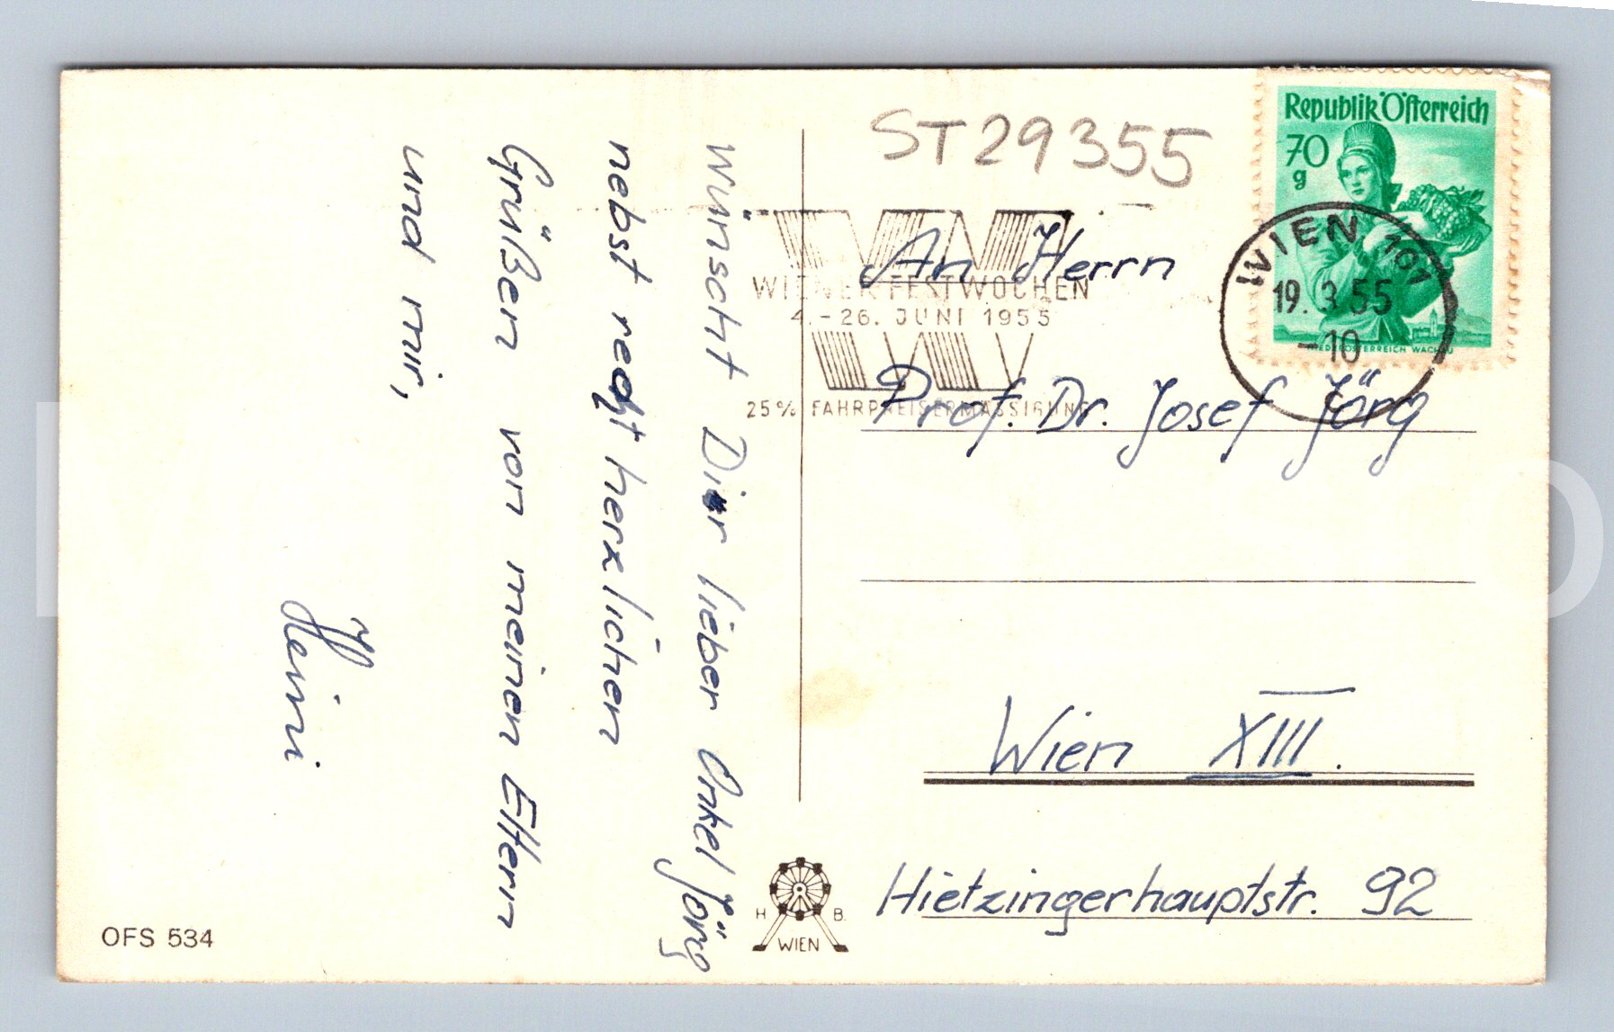 ST29355
Republik Österreich
70
g
WIEN 101
19.3.55
-10
WIENER FESTWOCHEN
4.-26. JUNI 1955
25% FAHRPREISERMÄSSIGUNG
An Herrn
Prof. Dr. Josef Jörg
Wien XIII.
Hietzingerhauptstr. 92
wünscht Dir lieber Onkel Jörg
nebst recht herzlichen
Grüßen von meinen Eltern
und mir,
Heini
H. B.
WIEN
OFS 534